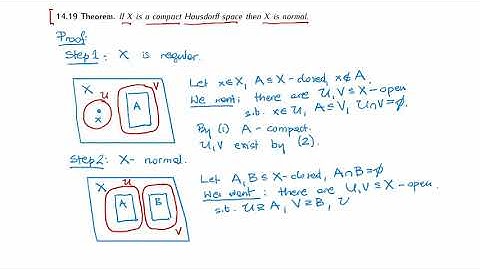 14.19 Theorem. If X is a compact Hausdorff space then X is normal.
Proof:
Step 1: X is regular.
Let x∈X, A⊆X-closed, x∉A.
We want: there are U,V⊆X-open
s.t. x∈U, A⊆V, U∩V=∅.
By (1) A-compact.
U,V exist by (2).
X U V
x A
Step 2: X-normal.
Let A,B⊆X-closed, A∩B=∅
We want: there are U,V⊆X-open.
s.t. U⊇A, V⊇B, U
X U
A B
V